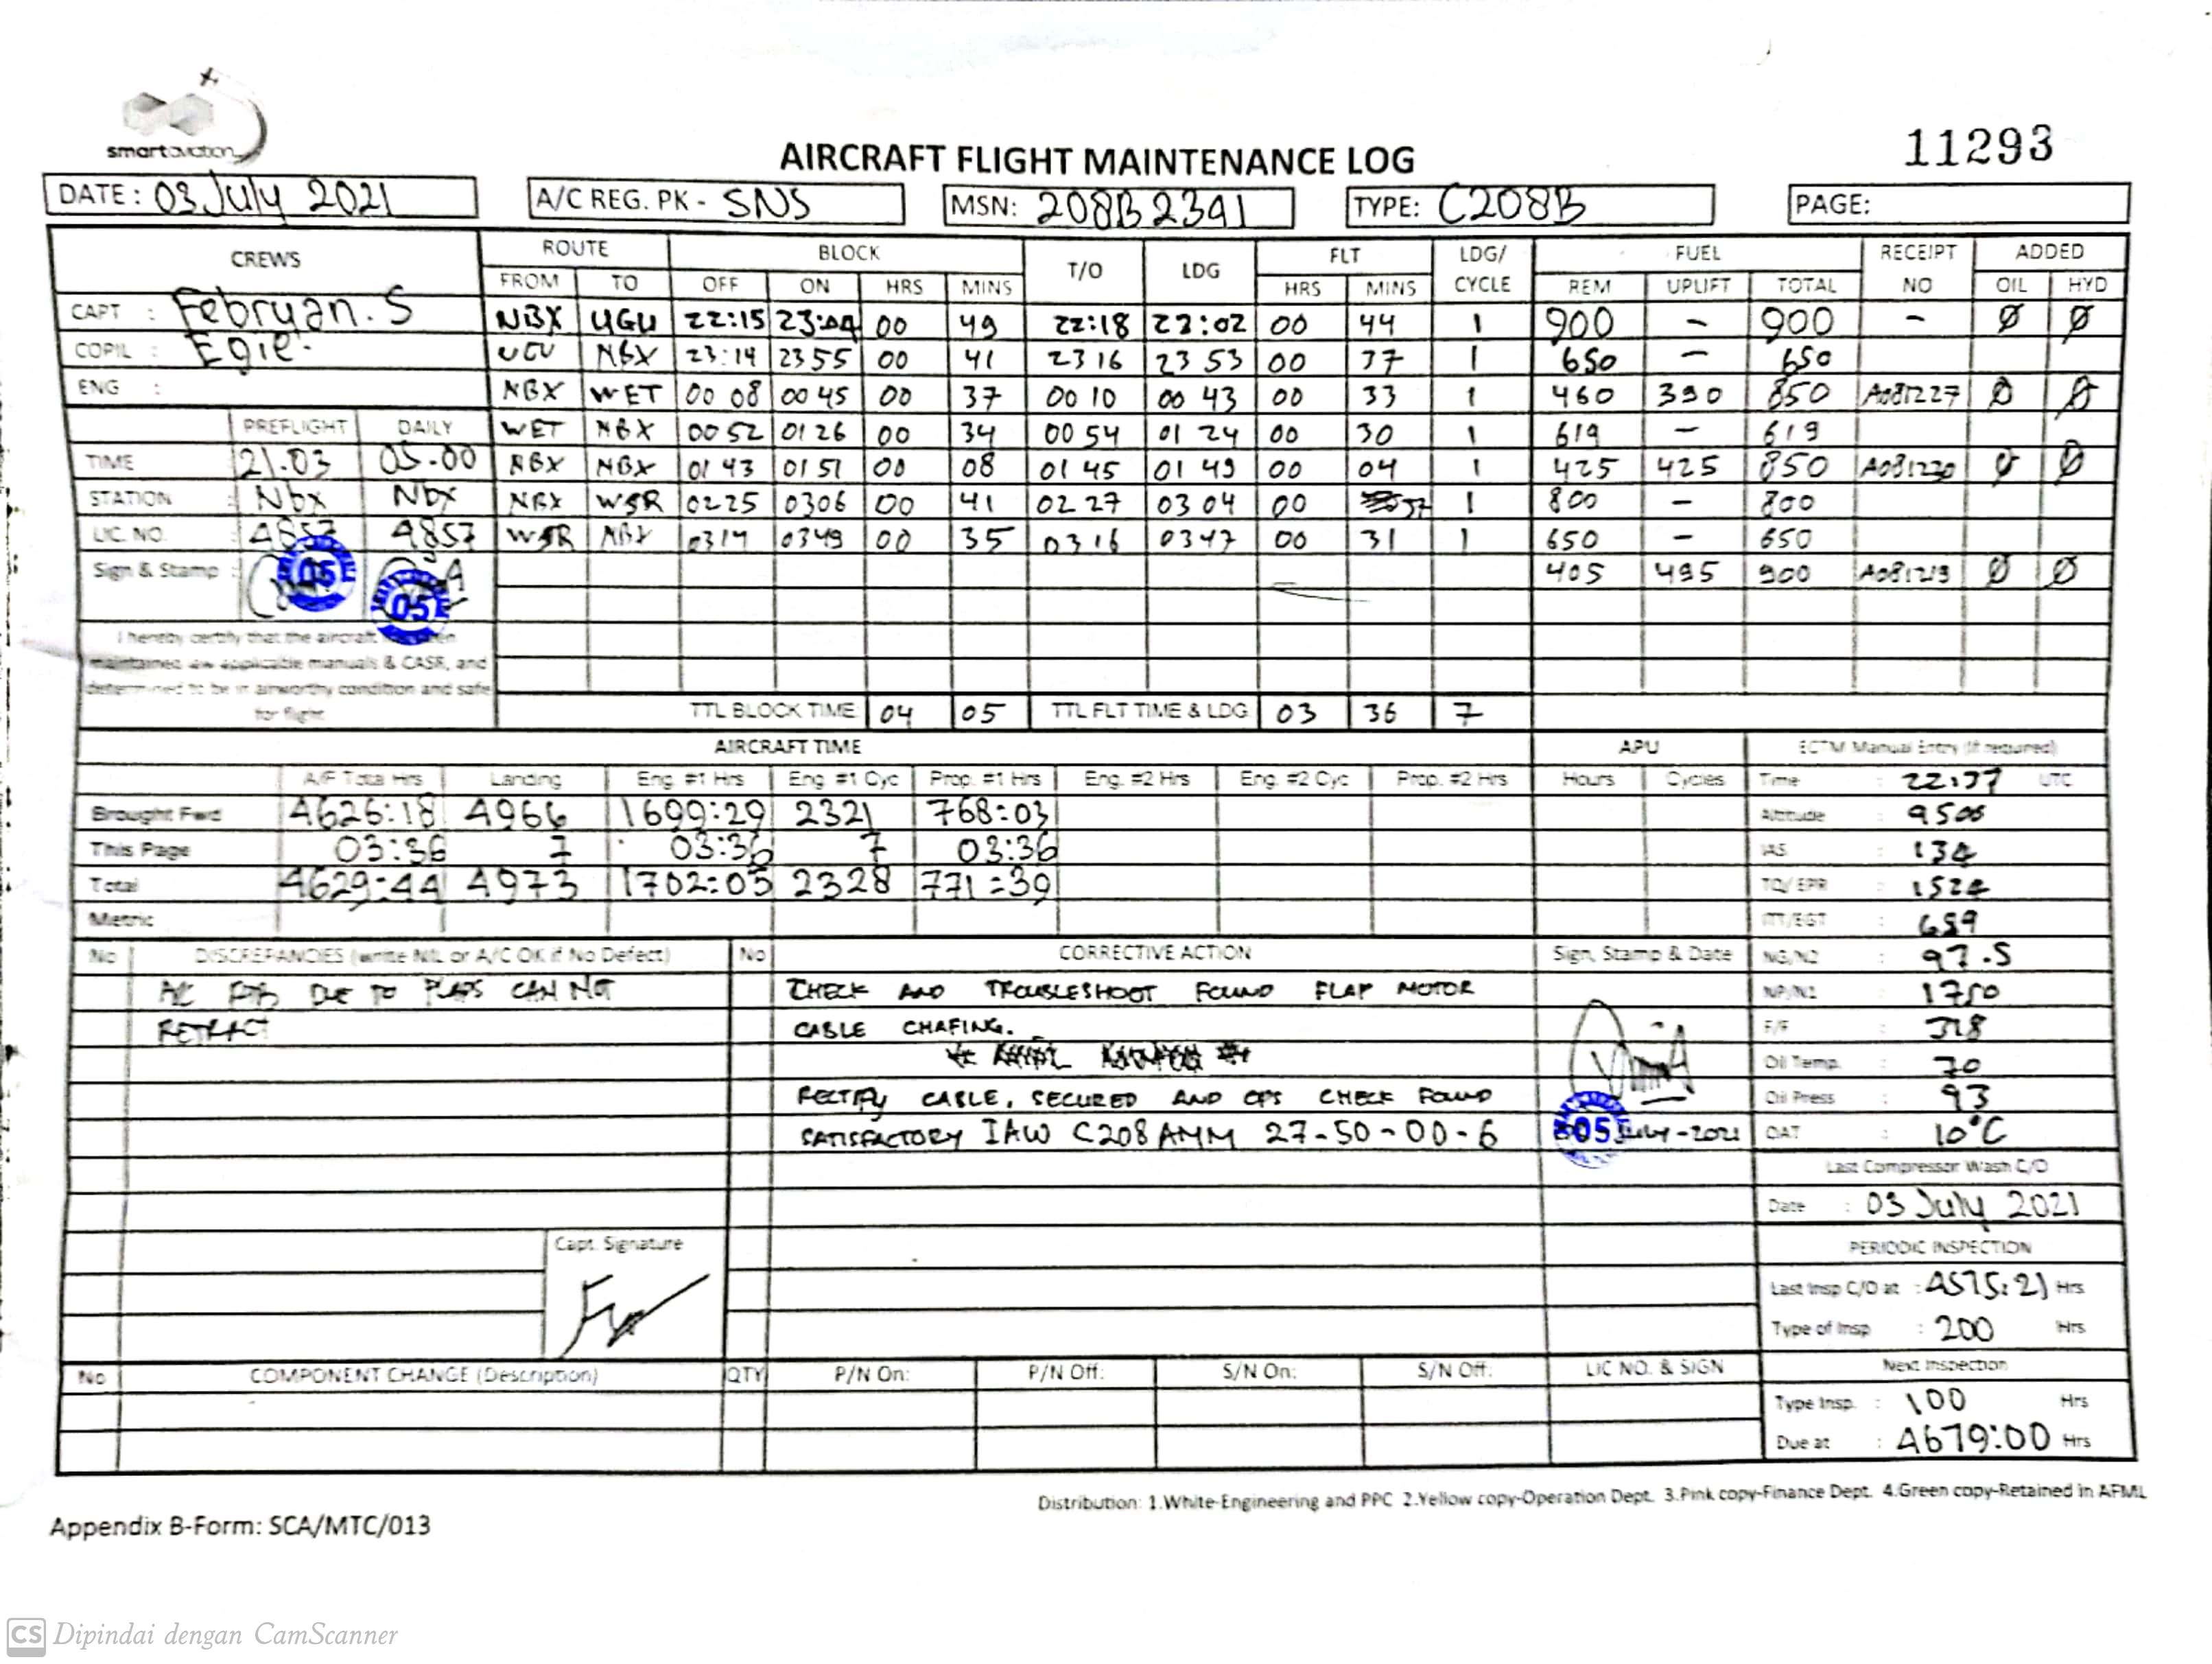 smartaviation
11293
AIRCRAFT FLIGHT MAINTENANCE LOG
DATE : 03 July 2021 A/C REG. PK - SNS MSN: 208B2391 TYPE: C208B PAGE:
CREWS ROUTE BLOCK T/O LDG FLT LDG/ CYCLE FUEL RECEIPT NO ADDED
FROM TO OFF ON HRS MINS HRS MINS REM UPLIFT TOTAL OIL HYD
CAPT : Febryan. S NBX UGU 22:15 23:04 00 49 22:18 23:02 00 44 1 900 - 900 - Ø Ø
COPIL : Egie. UGU NBX 23:14 23 55 00 41 23 16 23 53 00 37 1 650 - 650
ENG : NBX WET 00 08 00 45 00 37 00 10 00 43 00 33 1 460 390 850 A081227 Ø Ø
PREFLIGHT DAILY WET NBX 00 52 01 26 00 34 00 54 01 24 00 30 1 619 - 619
TIME : 21.03 05.00 NBX NBX 01 43 01 51 00 08 01 45 01 49 00 04 1 425 425 850 A081220 Ø Ø
STATION : Nbx Nbx NBX WSR 02 25 03 06 00 41 02 27 03 04 00 37 1 800 - 800
LIC. NO. : 4857 4857 WSR NBX 03 14 03 49 00 35 03 16 03 47 00 31 1 650 - 650
Sign & Stamp : 05 05 405 495 900 A081219 Ø Ø
I hereby certify that the aircraft
maintained iaw applicable manuals & CASR, and
determined to be in airworthy condition and safe
for flight
TTL BLOCK TIME 04 05 TTL FLT TIME & LDG 03 36 7
AIRCRAFT TIME APU ECTM Manual Entry (If required)
A/F Total Hrs Landing Eng. #1 Hrs Eng #1 Cyc Prop. #1 Hrs Eng. #2 Hrs Eng. #2 Cyc Prop. #2 Hrs Hours Cycles Time : 22:37 UTC
Brought Fwd 4626:18 4966 1699:29 2321 768:03 Altitude : 9500
This Page 03:36 7 03:36 7 03:36 IAS : 134
Total 4629:44 4973 1702:05 2328 771:39 TQ/ EPR : 1524
Metric ITT/EGT : 689
No DISCREPANCIES (write NIL or A/C OK if No Defect) No CORRECTIVE ACTION Sign, Stamp & Date NG/N2 : 97.5
A/C RTB DUE TO FLAPS CAN NOT CHECK AND TROUBLESHOOT FOUND FLAP MOTOR NP/N1 : 1750
RETRACT CABLE CHAFING. F/F : 318
Oil Temp. : 70
RECTIFY CABLE, SECURED AND OPS CHECK FOUND Oil Press : 93
SATISFACTORY IAW C208 AMM 27-50-00-6 05 JULY-2021 OAT : 10°C
Last Compressor Wash C/O
Date : 03 July 2021
Capt. Signature
PERIODIC INSPECTION
Last Insp C/O at : 4575:21 Hrs
Type of Insp : 200 Hrs
No COMPONENT CHANGE (Description) QTY P/N On: P/N Off: S/N On: S/N Off: LIC NO. & SIGN Next Inspection
Type Insp. : 100 Hrs
Due at : 4679:00 Hrs
Distribution: 1.White-Engineering and PPC 2.Yellow copy-Operation Dept. 3.Pink copy-Finance Dept. 4.Green copy-Retained in AFML
Appendix B-Form: SCA/MTC/013
CS Dipindai dengan CamScanner